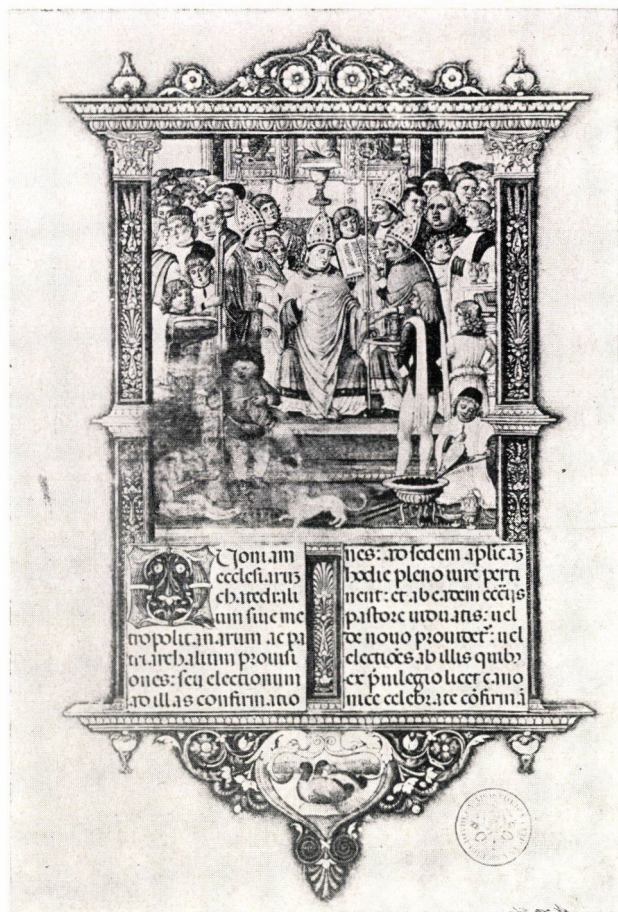 Quoniam
ecclesiaruz
chatedrali
um siue me
tropolitanarum ac pa
triarchalium prouisi
ones: seu electionum
ad illas confirmatio
nes: ad sedem aplicaz
hodie pleno iure perti
nent: et ab eadem ecciis
pastore uiduatis: uel
de nouo prouidet᷑: uel
electiões ab illis quibꝫ
ex puilegio licet cano
nice celebrate cõfirmã